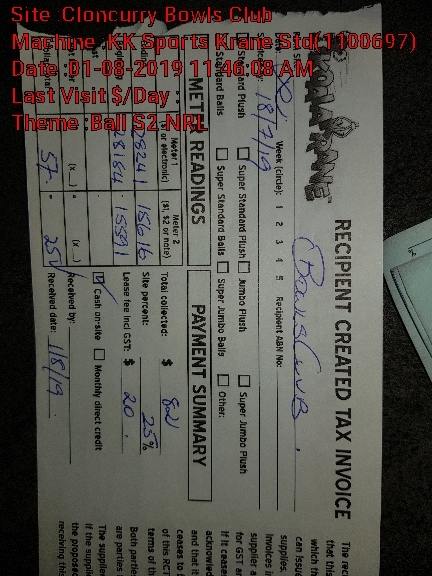 Site :Cloncurry Bowls Club
Machine :KK Sports Krane Std(1100697)
Date :01-08-2019 11:46:08 AM
Last Visit $/Day
Theme :Ball S2 NRL
RECIPIENT CREATED TAX INVOICE
KOALA KRANE
Bowls Club
18/7/19
Week (circle): 1 2 3 4 5 Recipient ABN No:
Standard Plush Super Standard Plush Jumbo Plush Super Jumbo Plush
Standard Balls Super Standard Balls Super Jumbo Balls Other:
METER READINGS
PAYMENT SUMMARY
Meter 1
or electronic)
Meter 2
($1, $2 or note)
28241 15616
28184 15591
57 25
Total collected: $ 82
Site percent: 25%
Lease fee incl GST: $ 20.
Cash on-site Monthly direct credit
Received by:
Received date: 1/8/19
The
that this
which th
can issue
supplies.
Invoices i
supplier a
for GST a
if it cease
acknowled
and that it
ceases to b
of this RCT
terms of th
Both partie
are parties
The supplie
if the suppli
the propose
receiving this